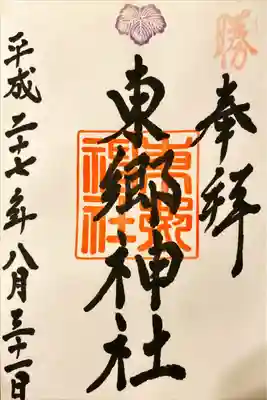 勝
奉拝
東郷神社
東郷神社
平成二十七年八月三十一日